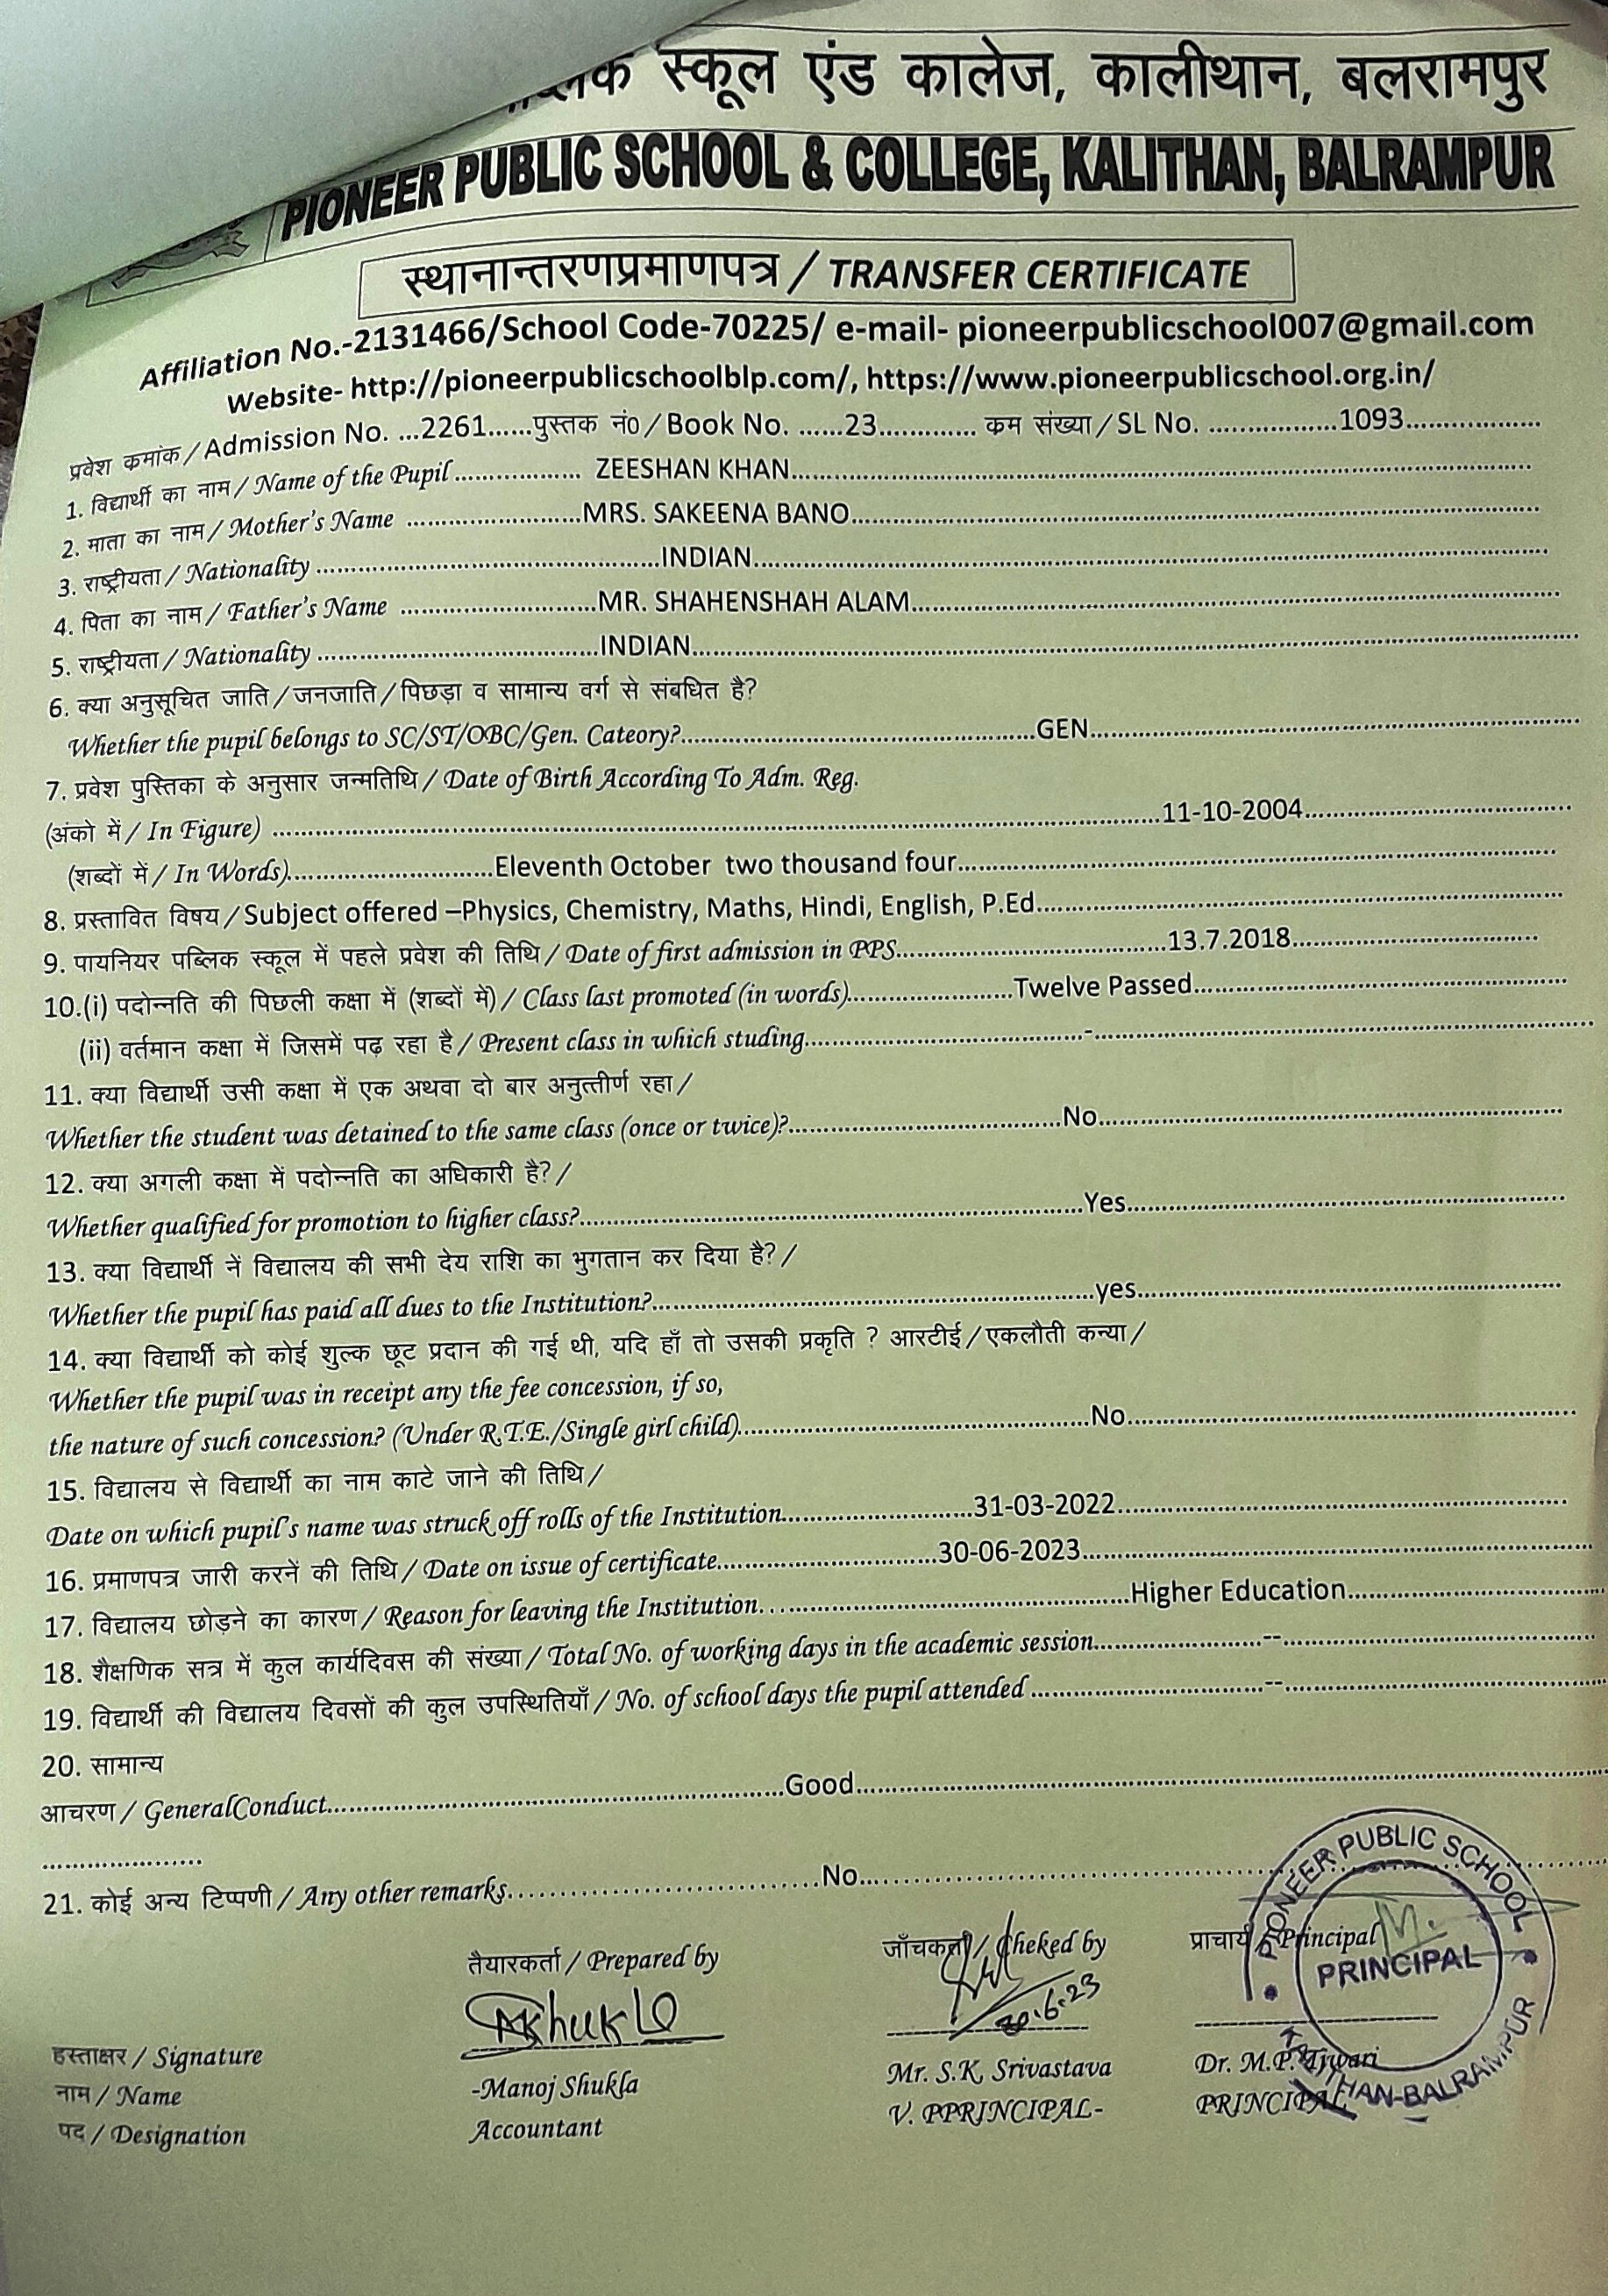 स्कूल एंड कालेज, कालीथान, बलरामपुर
PIONEER PUBLIC SCHOOL & COLLEGE, KALITHAN, BALRAMPUR
स्थानान्तरणप्रमाणपत्र / TRANSFER CERTIFICATE
Affiliation No.-2131466/School Code-70225/ e-mail- pioneerpublicschool007@gmail.com
Website- http://pioneerpublicschoolblp.com/, https://www.pioneerpublicschool.org.in/
प्रवेश कमांक / Admission No. ...2261......पुस्तक नं0 / Book No. ......23............. कम संख्या / SL No. ..................1093..................
1. विद्यार्थी का नाम / Name of the Pupil ................. ZEESHAN KHAN..................
2. माता का नाम / Mother's Name ..................MRS. SAKEENA BANO..................
3. राष्ट्रीयता / Nationality ..................INDIAN..................
4. पिता का नाम / Father's Name ..................MR. SHAHENSHAH ALAM..................
5. राष्ट्रीयता / Nationality ..................INDIAN..................
6. क्या अनुसूचित जाति / जनजाति / पिछड़ा व सामान्य वर्ग से संबधित है?
Whether the pupil belongs to SC/ST/OBC/Gen. Cateory?..................GEN..................
7. प्रवेश पुस्तिका के अनुसार जन्मतिथि / Date of Birth According To Adm. Reg.
(अंको में / In Figure) ..................11-10-2004..................
(शब्दों में / In Words)..................Eleventh October two thousand four..................
8. प्रस्तावित विषय / Subject offered –Physics, Chemistry, Maths, Hindi, English, P.Ed..................
9. पायनियर पब्लिक स्कूल में पहले प्रवेश की तिथि / Date of first admission in PPS..................13.7.2018..................
10.(i) पदोन्नति की पिछली कक्षा में (शब्दों में) / Class last promoted (in words)..................Twelve Passed..................
(ii) वर्तमान कक्षा में जिसमें पढ़ रहा है / Present class in which studing..................-..................
11. क्या विद्यार्थी उसी कक्षा में एक अथवा दो बार अनुत्तीर्ण रहा /
Whether the student was detained to the same class (once or twice)?..................No..................
12. क्या अगली कक्षा में पदोन्नति का अधिकारी है? /
Whether qualified for promotion to higher class?..................Yes..................
13. क्या विद्यार्थी नें विद्यालय की सभी देय राशि का भुगतान कर दिया है? /
Whether the pupil has paid all dues to the Institution?..................yes..................
14. क्या विद्यार्थी को कोई शुल्क छूट प्रदान की गई थी, यदि हाँ तो उसकी प्रकृति ? आरटीई / एकलौती कन्या /
Whether the pupil was in receipt any the fee concession, if so,
the nature of such concession? (Under R.T.E./Single girl child)..................No..................
15. विद्यालय से विद्यार्थी का नाम काटे जाने की तिथि /
Date on which pupil's name was struck off rolls of the Institution..................31-03-2022..................
16. प्रमाणपत्र जारी करनें की तिथि / Date on issue of certificate..................30-06-2023..................
17. विद्यालय छोड़ने का कारण / Reason for leaving the Institution..................Higher Education..................
18. शैक्षणिक सत्र में कुल कार्यदिवस की संख्या / Total No. of working days in the academic session..................--..................
19. विद्यार्थी की विद्यालय दिवसों की कुल उपस्थितियाँ / No. of school days the pupil attended ..................--..................
20. सामान्य
आचरण / GeneralConduct..................Good..................
.....................
21. कोई अन्य टिप्पणी / Any other remarks..................No..................
तैयारकर्ता / Prepared by जाँचकर्ता / Cheked by प्राचार्य / Principal
MKshukla 30.6.23
PIONEER PUBLIC SCHOOL
PRINCIPAL
KALITHAN-BALRAMPUR
हस्ताक्षर / Signature
नाम / Name -Manoj Shukla Mr. S.K. Srivastava Dr. M.P. Tiwari
पद / Designation Accountant V. PPRINCIPAL- PRINCIPAL